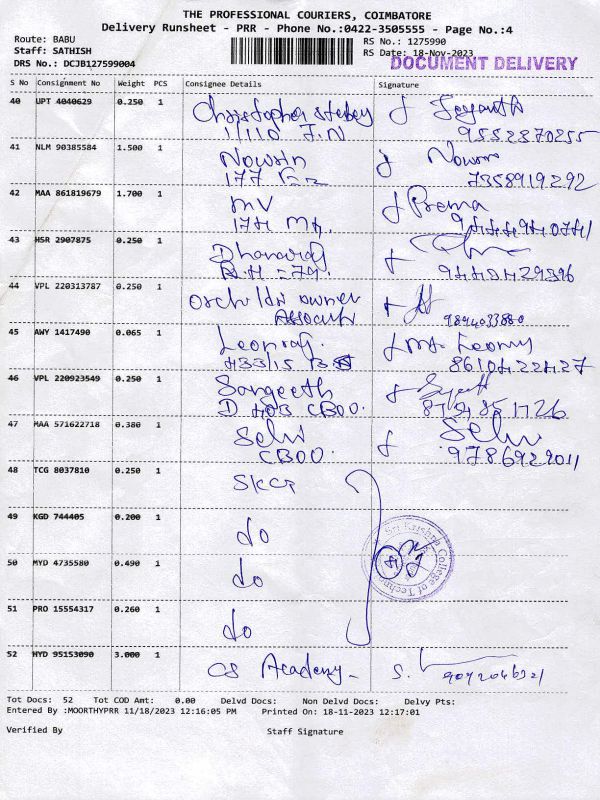 THE PROFESSIONAL COURIERS, COIMBATORE
Delivery Runsheet - PRR - Phone No.:0422-3505555 - Page No.:4
Route: BABU
RS No.: 1275990
Staff: SATHISH
RS Date: 18-Nov-2023
DRS No.: DCJB127599004
DOCUMENT DELIVERY
S No Consignment No Weight PCS Consignee Details Signature
40 UPT 4040629 0.250 1 Christopher Jeyanth
1/110 J.N 9552870255
41 NLM 90385584 1.500 1 Nowrin Nowrin
177 7358919292
42 MAA 861819679 1.700 1 MV Prema
174
43 HSR 2907875 0.250 1 Dhanaraj
44 VPL 220313787 0.250 1 Orchidn owner
9894033880
45 AWY 1417490 0.065 1 Leonraj
433/15 8610422427
46 VPL 220923549 0.250 1 Sangeeth
D 403 CBOO.
47 MAA 571622718 0.380 1 Selvi Selvi
CBOO. 9786929011
48 TCG 8037810 0.250 1 SKCT
49 KGD 744405 0.200 1 do
50 MYD 4735580 0.490 1 do
Sri Krishna College of Techno
51 PRO 15554317 0.260 1 do
52 HYD 95153090 3.000 1 CS Academy - S.
Tot Docs: 52 Tot COD Amt: 0.00 Delvd Docs: Non Delvd Docs: Delvy Pts:
Entered By :MOORTHYPRR 11/18/2023 12:16:05 PM Printed On: 18-11-2023 12:17:01
Verified By Staff Signature